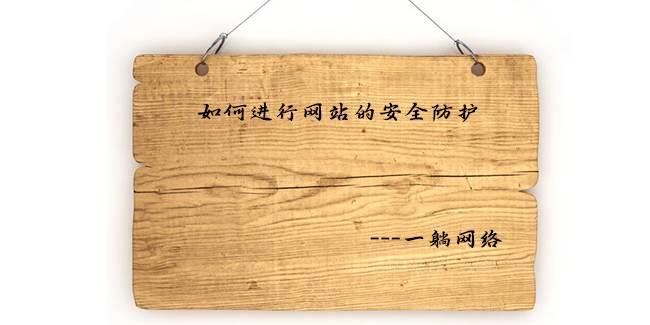 如何进行网站的安全防护
---一躺网络